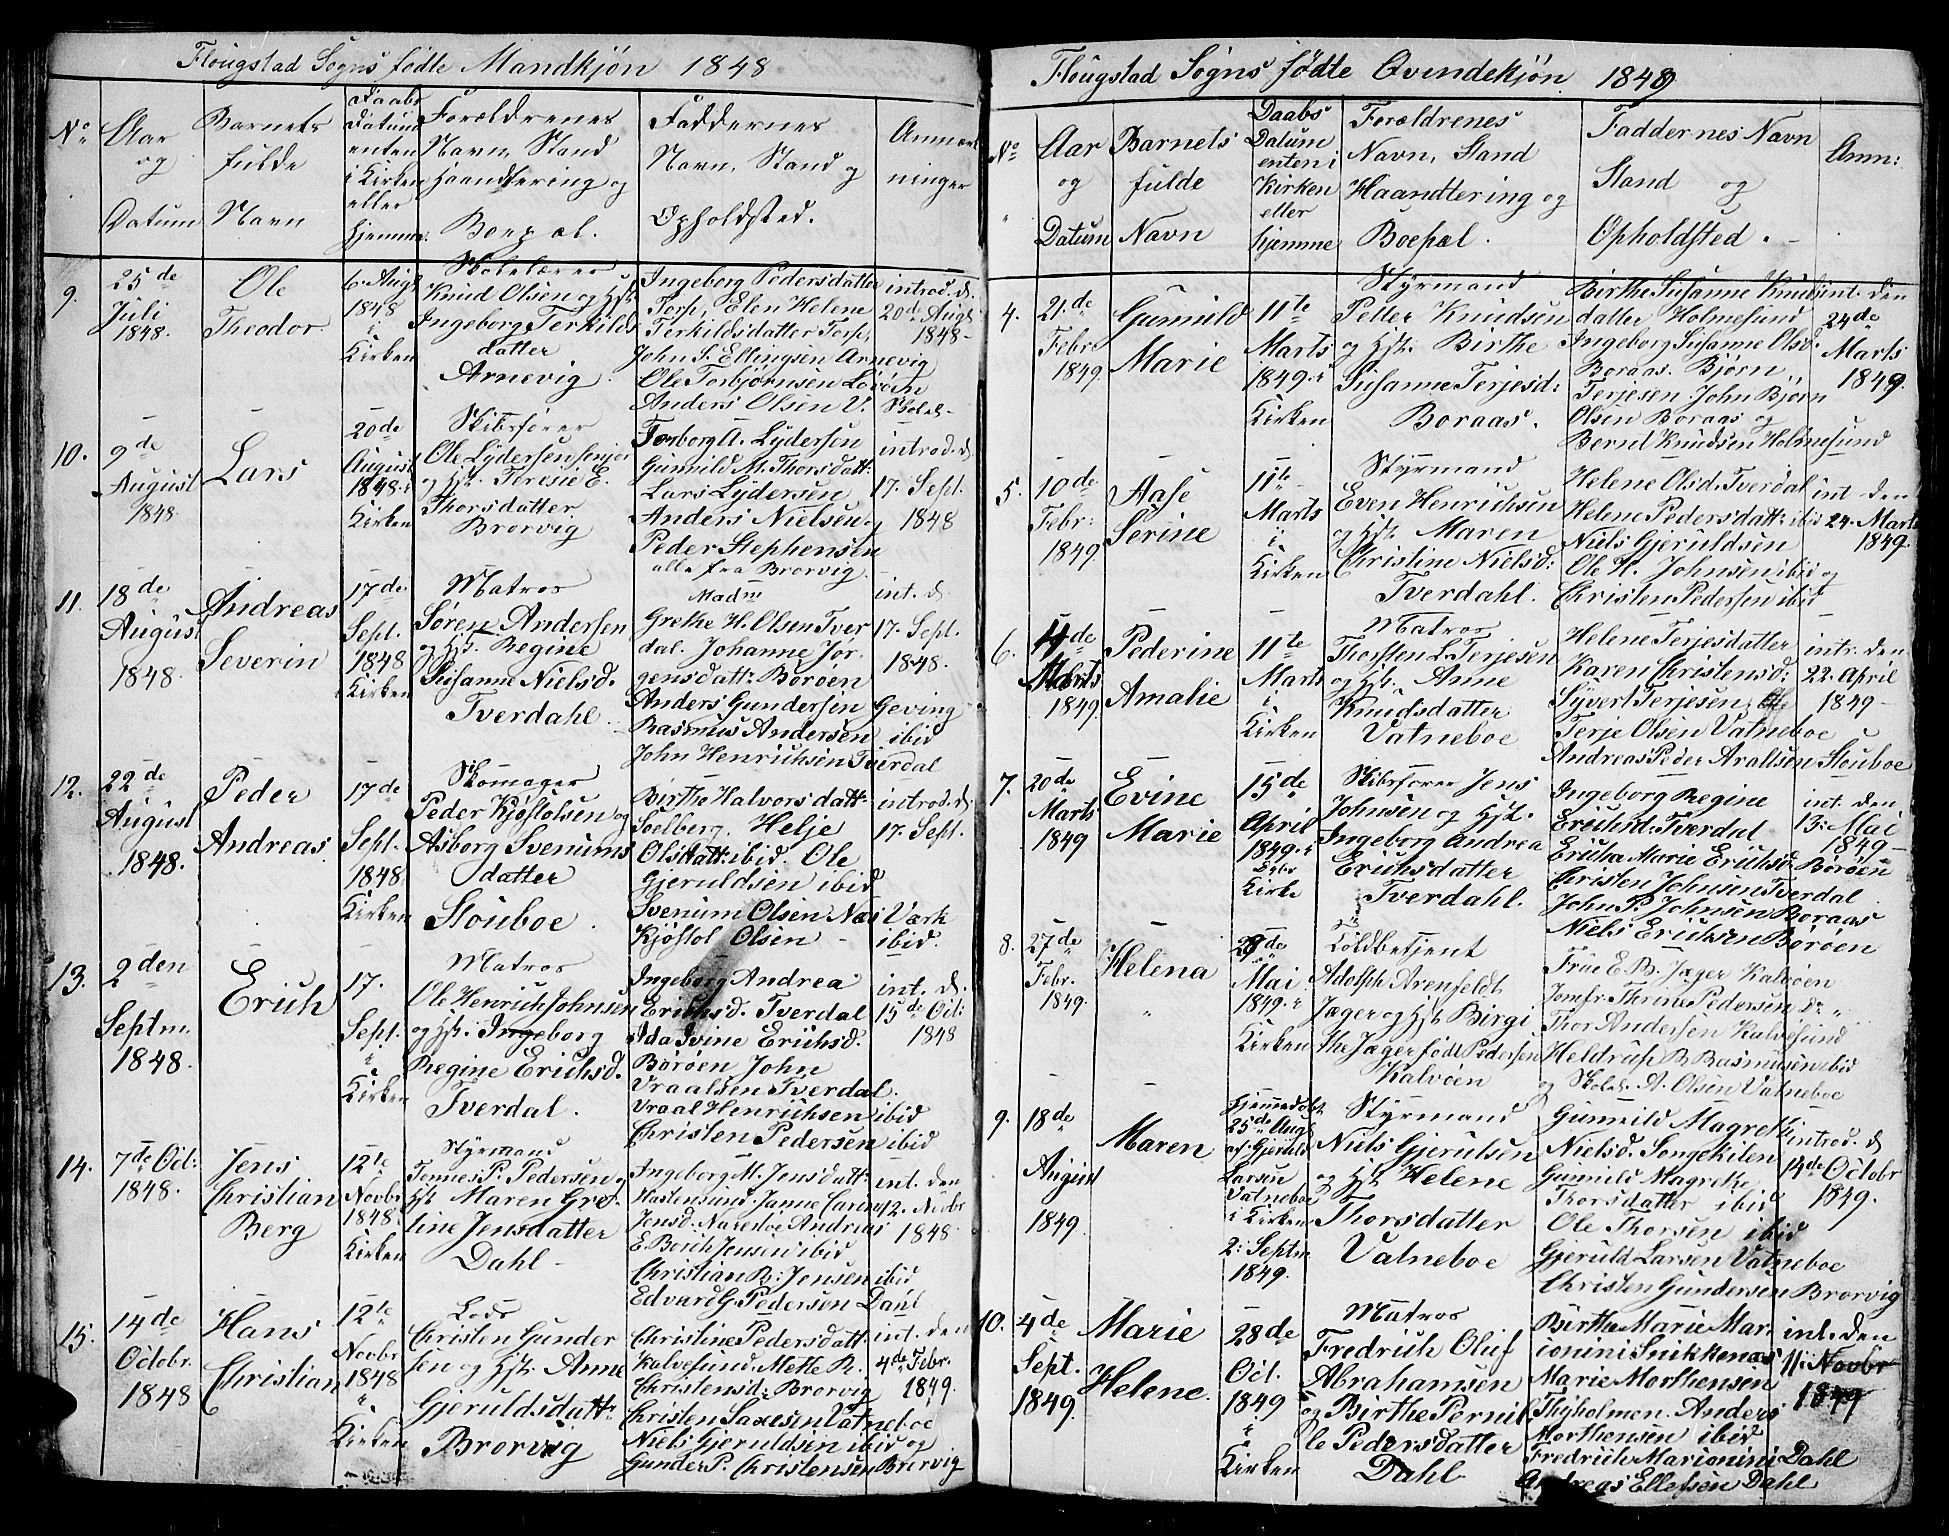 Flougstad Sogns fødte Mandkjøn 1848
No
Aar
og
Datum
Barnets
fulde
Navn
Daabs
Datum
enten
i Kirken
eller
hjemme
Forældrenes
Navn, Stand
Haandtering og
Boepæl.
Faddernes
Navn, Stand og
Opholdsted.
Anmærk
ninger
9.
25de
Juli
1848.
Ole
Theodor
6 Augs
1848
i
Kirken
Skolelærer
Knud Olsen og Hst.
Ingeborg Terkilds
datter
Arnevig
Ingeborg Pedersdatter
Torse, Elen Helene
Terkildsdatter Torse,
John F. Ellingsen Arnevig
Ole Torbjørnsen
Anders Olsen V. Skoleh.
introd. d.
20d. Augs
1848-
10.
9de
August
1848
Lars
20de
August
1848 i
Kirken
Skibsfører
Ole Lydersen senjor
og Hst. Teresie E.
Thorsdatter
Brorvig
Torborg A. Lydersen
Gunnild M. Thorsdatt:
Lars Lydersen
Anders Nielsen og
Peder Stephensen
alle fra Brorvig
introd. d.
17. Sept.
1848
11.
18de
August
1848
Andreas
Severin
17de
Sept.
1848
Kirken
Matros
Søren Andersen
og Hst. Regine
Susanne Nielsd.
Tverdahl
Madm
Grethe H. Olsen Tver
dal. Johanne Jør
gensdatt: Børøen
Anders Gundersen Goving
Rasmus Andersen ibid
John Henrichsen Tverdal
int. d
17. Sept.
1848.
12.
22de
August
1848.
Peder
Andreas
17de
Sept.
1848
Kirken
Skomager
Peder Kjøstolsen og
Asborg Svenums
datter
Stouboe
Birthe Halvorsdatt:
Soelberg. Helje
Olsdatt: ibid. Ole
Gjeruldsen ibid
Svenum Olsen Næs Værk
Kjøstol Olsen - ibid.
introd. d.
17. Sept.
13.
2den
Septm.
1848.
Erich
17.
Sept.
i
Kirken
Matros
Ole Henrich Johnsen
og Hst. Ingeborg
Regine Erichsd.
Tverdal.
Ingeborg Andrea
Erichsd. Tverdal
Ida Ivine Erichsd.
Børøen John
Vraalsen Tverdal.
Vraal Henrichsen ibid
Christen Pedersen ibid
int. d.
15de Oct:
1848
14.
7de Oct:
1848.
Jens
Christian
Berg
12te
Novbr
1848.
Kirken
Styrmand
Tønnes P. Pedersen og
Hst Maren Gre-
tine Jensdatter
Dahl -
Ingeborg M. Jensdatt:
Hastensund. Janne Caren
Jensd. Narestøe Andreas
E. Borch Jensen ibid
Christian B: Jensen ibid
Edvard G. Pedersen Dahl
int. den
12. Novbr
1848
15.
14de
Octobr.
1848
Hans
Christian
12te
Novbr
1848
i
Kirken
Lods
Christen Gunder
sen og Hst. Anne
Gjeruldsdatt:
Brorvig
Christine Pedersdatt:
Kalvesund. Mette R.
Christensd: Brorvig
Christen Saxesen Vatneboe
Niels Gjeruldsen ibid og
Gunder P. Christensen Brorvig
int. den
4de Febr.
1849.
Flougstad Sogns fødte Qvindekjøn 1849
No
Aar
og
Datum
Barnets
fulde
Navn
Daabs
Datum
enten i
Kirken
eller
hjemme
Forældrenes
Navn, Stand
Haandtering og
Boepæl.
Faddernes Navn
Stand og
Opholdsted.
Anm:
4.
21.de
Febr
1849.
Gunnild
Marie
11te
Marts
1849. i
Kirken
Styrmand
Petter Knudsen
og Hst. Birthe
Susanne Terjesd:
Boraas.
Birthe Susanne Knuds
datter Holmesund
Ingeborg Susanne Olsd.
Boraas. Bjørn
Terjesen. John Bjørn
Olsen Boraas og
Bernt Knudsen Holmesund
int. den
24de
Marts
1849.
5.
10de
Febr:
1849.
Aase
Serine
11te
Marts
i
Kirken
Styrmand
Even Henrichsen
og Hst. Maren
Christine Nielsd:
Tverdahl.
Helene Olsd. Tverdal
Helene Pedersdatt: ibid
Niels Gjeruldsen
Ole H. Johnsen ibid og
Christen Pedersen ibid
int den
24. Marts
1849.
6.
4de
Marts
1849.
Pederine
Amalie
11te
Marts
i
Kirken
Matros
Thorsten L. Terjesen
og Hst. Anne
Knudsdatter
Vatneboe
Helene Terjesdatter
Karen Christensd:
Syvert Terjesen
Terje Olsen Vatneboe
Andreas Peder Aralsen Stouboe
intr. den
22. April
1849-
7.
20de
Marts
1849
Evine
Marie
15de
April
1849. i
Kirke
Skibsfører Jens
Johnsen og Hst.
Ingeborg Andrea
Erichsdatter
Tverdahl.
Ingeborg Regine
Erichsd. Tverdal
Ericha Marie Erichsd. Børøen
Christen Johnsen Tverdal
John P. Johnsen Boraas
Niels Erichsen Børøen
int. den
13: Mai
1849-
8.
27de
Febr.
1849.
Helena
28de
Mai
1849. i
Kirken
Toldbetjent
Adolph Arenfeldt
Jæger og Hst Birgi
the Jæger født Pedersen
Kalvøen
Frue E. B. Jæger Kalvøen
Jomfr: Thrine Pedersen Do
Thor Andersen Kalvesund
Heldruse B. Rasmussen ibid
og Skoleh. A. Olsen Vatneboe
9.
18de
August
1849
Maren
Hjemmedøbt
25de Augs
af Gjeruld
Larsen
Vatneboe
i Kirken
2: Septm
1849.
Styrmand
Niels Gjerulsen
og Hst Helene
Thorsdatter
Vatneboe
Gunnild Magrethe
Nielsd. Songekilen
Gunnild Magrethe
Thorsdatter ibid
Ole Thorsen ibid
Gjeruld Larsen Vatneboe
Christen Gundersen Brorvig
introd. d
14de Octobr
1849.
10.
4de
Sept.
1849.
Marie
Helene.
28de
Oct.
1849
i
Kirken
Matros
Fredrich Oluf
Abrahamsen
og Birthe Pernil
le Pedersdatter
Dahl
Birthe Marie Mar-
ionini Snikkenæs
Marie Morthensen
Thyholmen. Anders
Morthensen ibid
Fredrich Marionini Dahl
Andreas Ellefsen Dahl
int. den
11: Novbr
1849